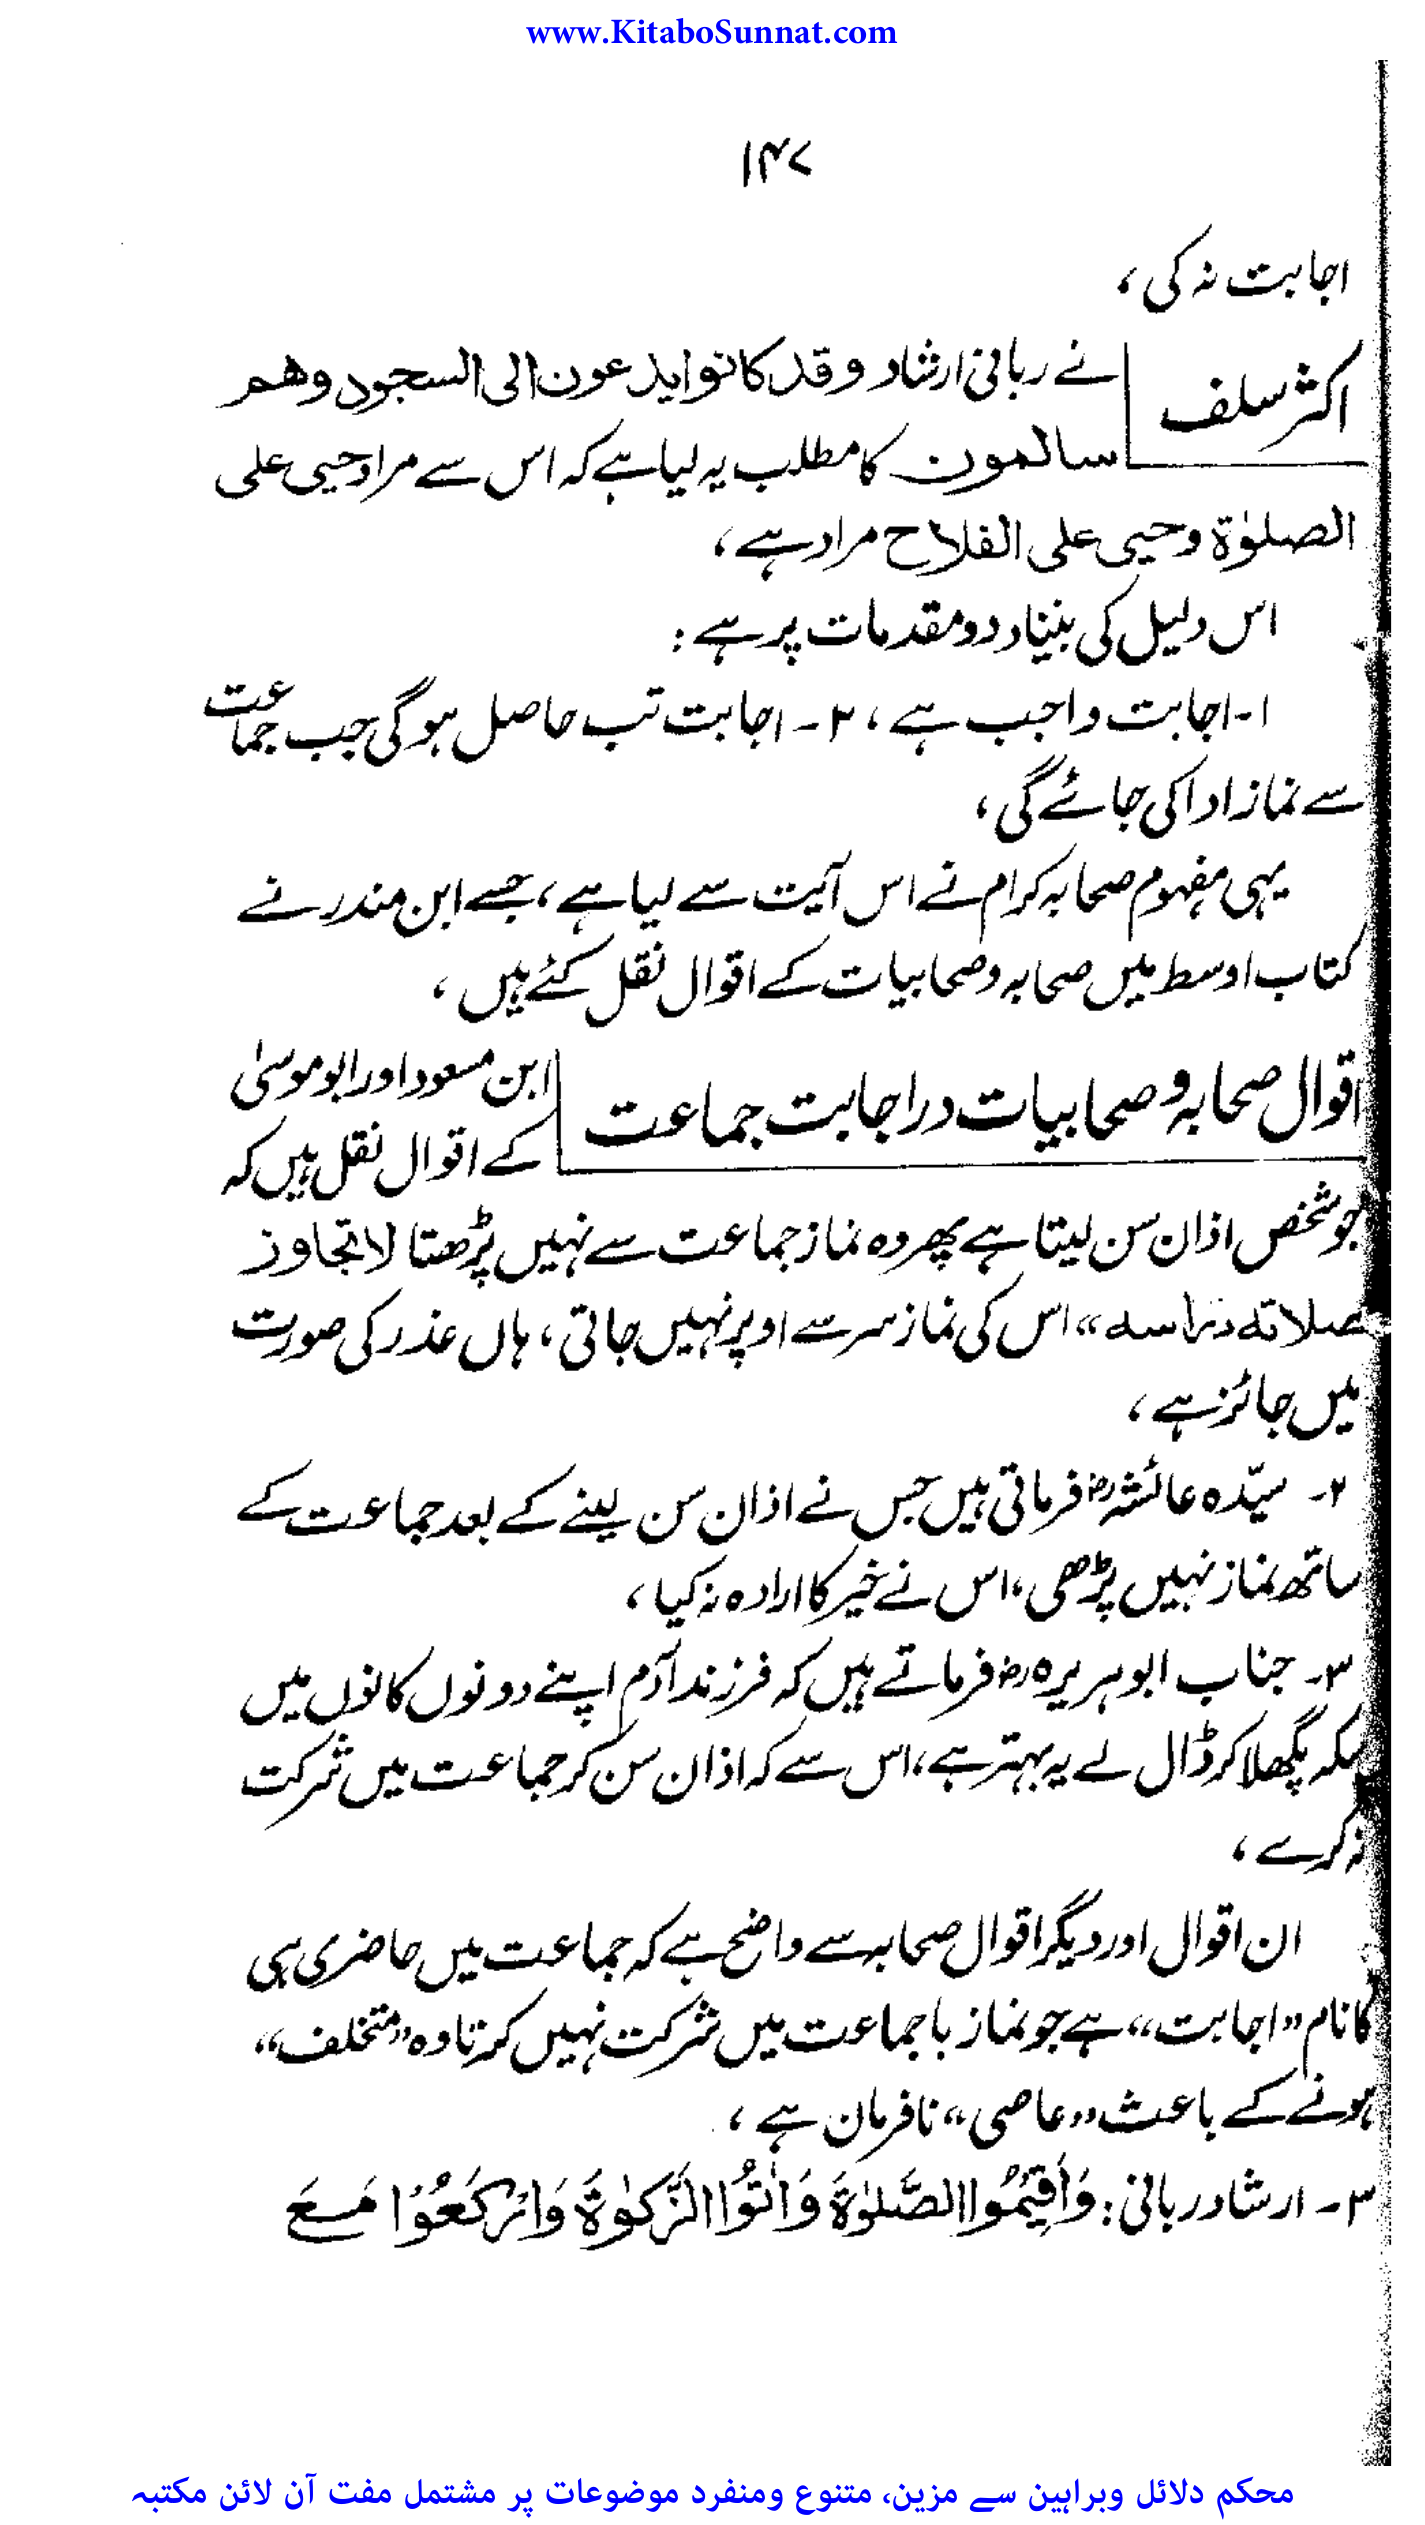 www.KitaboSunnat.com
۱۴۷
اجابت نہ کی ،
اکثر سلف نے ربانی ارشاد وقد کانوا یدعون الی السجود وھم
سالمون کا مطلب یہ لیا ہے کہ اس سے مراد حیی علی
الصلوٰۃ وحیی علی الفلاح مراد ہے ،
اس دلیل کی بنیاد دو مقدمات پر ہے :
۱- اجابت واجب ہے ، ۲- اجابت تب حاصل ہوگی جب جماعت
سے نماز ادا کی جائے گی ،
یہی مفہوم صحابہ کرام نے اس آیت سے لیا ہے ، جسے ابن منذر نے
کتاب اوسط میں صحابہ و صحابیات کے اقوال نقل کئے ہیں ،
اقوال صحابہ و صحابیات در اجابت جماعت ابن مسعود اور ابو موسیٰ
کے اقوال نقل ہیں کہ
جو شخص اذان سن لیتا ہے پھر وہ نماز جماعت سے نہیں پڑھتا لا تجاوز
صلاتہ راسہ“ اس کی نماز سر سے اوپر نہیں جاتی ، ہاں عذر کی صورت
میں جائز ہے ،
۲- سیّدہ عائشہؓ فرماتی ہیں جس نے اذان سن لینے کے بعد جماعت کے
ساتھ نماز نہیں پڑھی ، اس نے خیر کا ارادہ نہ کیا ،
۳- جناب ابوہریرہؓ فرماتے ہیں کہ فرزند آدم اپنے دونوں کانوں میں
سکہ پگھلا کر ڈال لے یہ بہتر ہے ، اس سے کہ اذان سن کر جماعت میں شرکت
نہ کرے ،
ان اقوال اور دیگر اقوال صحابہ سے واضح ہے کہ جماعت میں حاضری ہی
کا نام ”اجابت“ ہے جو نماز باجماعت میں شرکت نہیں کرتا وہ ”متخلف“
ہونے کے باعث ”عاصی“ نافرمان ہے ،
۳- ارشاد ربانی : وَاَقِیْمُوا الصَّلوٰۃَ وَاٰتُوا الزَّکوٰۃَ وَارْکَعُوْا مَعَ
محکم دلائل وبراہین سے مزین، متنوع ومنفرد موضوعات پر مشتمل مفت آن لائن مکتبہ